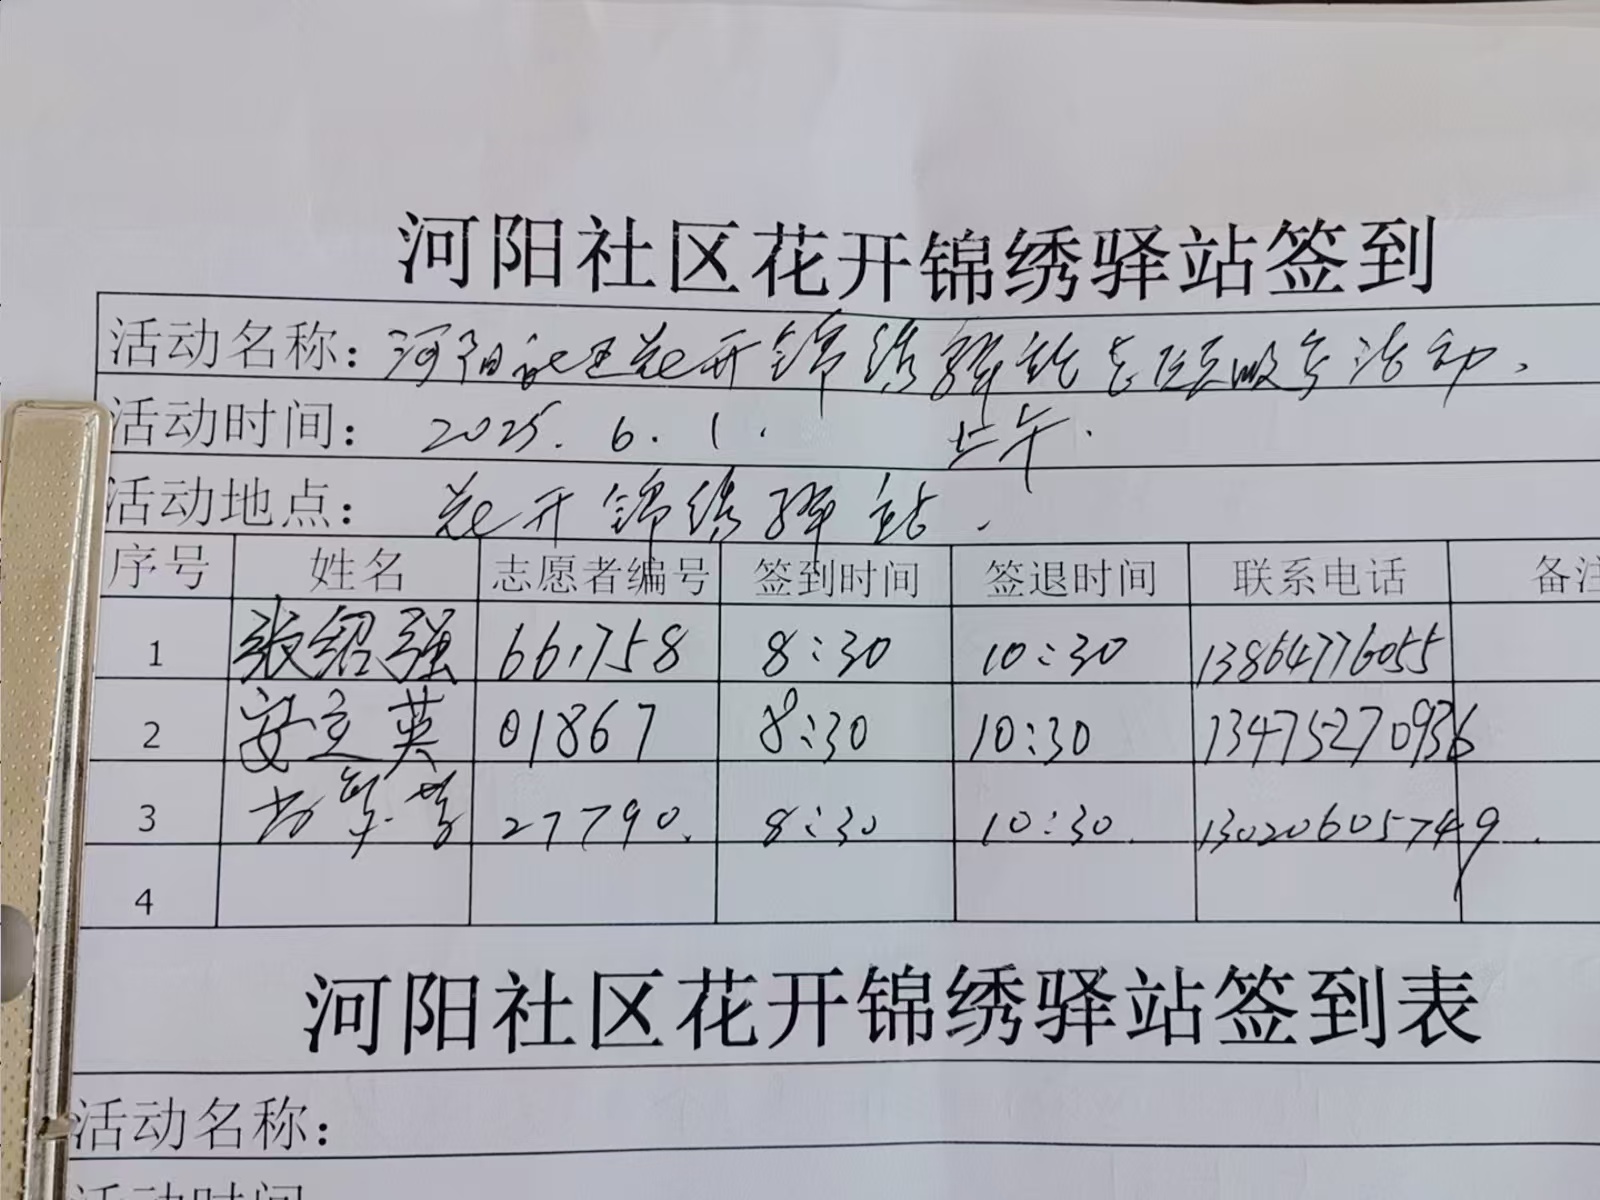 河阳社区花开锦绣驿站签到
活动名称：河阳社区花开锦绣驿站志愿服务活动.
活动时间： 2025.6.1. 上午.
活动地点： 花开锦绣驿站.
序号 姓名 志愿者编号 签到时间 签退时间 联系电话 备注
1 张绍强 661758 8:30 10:30 13864776055
2 安立英 01867 8:30 10:30 13475270936
3 27790. 8:30 10:30. 13020605749.
4
河阳社区花开锦绣驿站签到表
活动名称：
活动时间